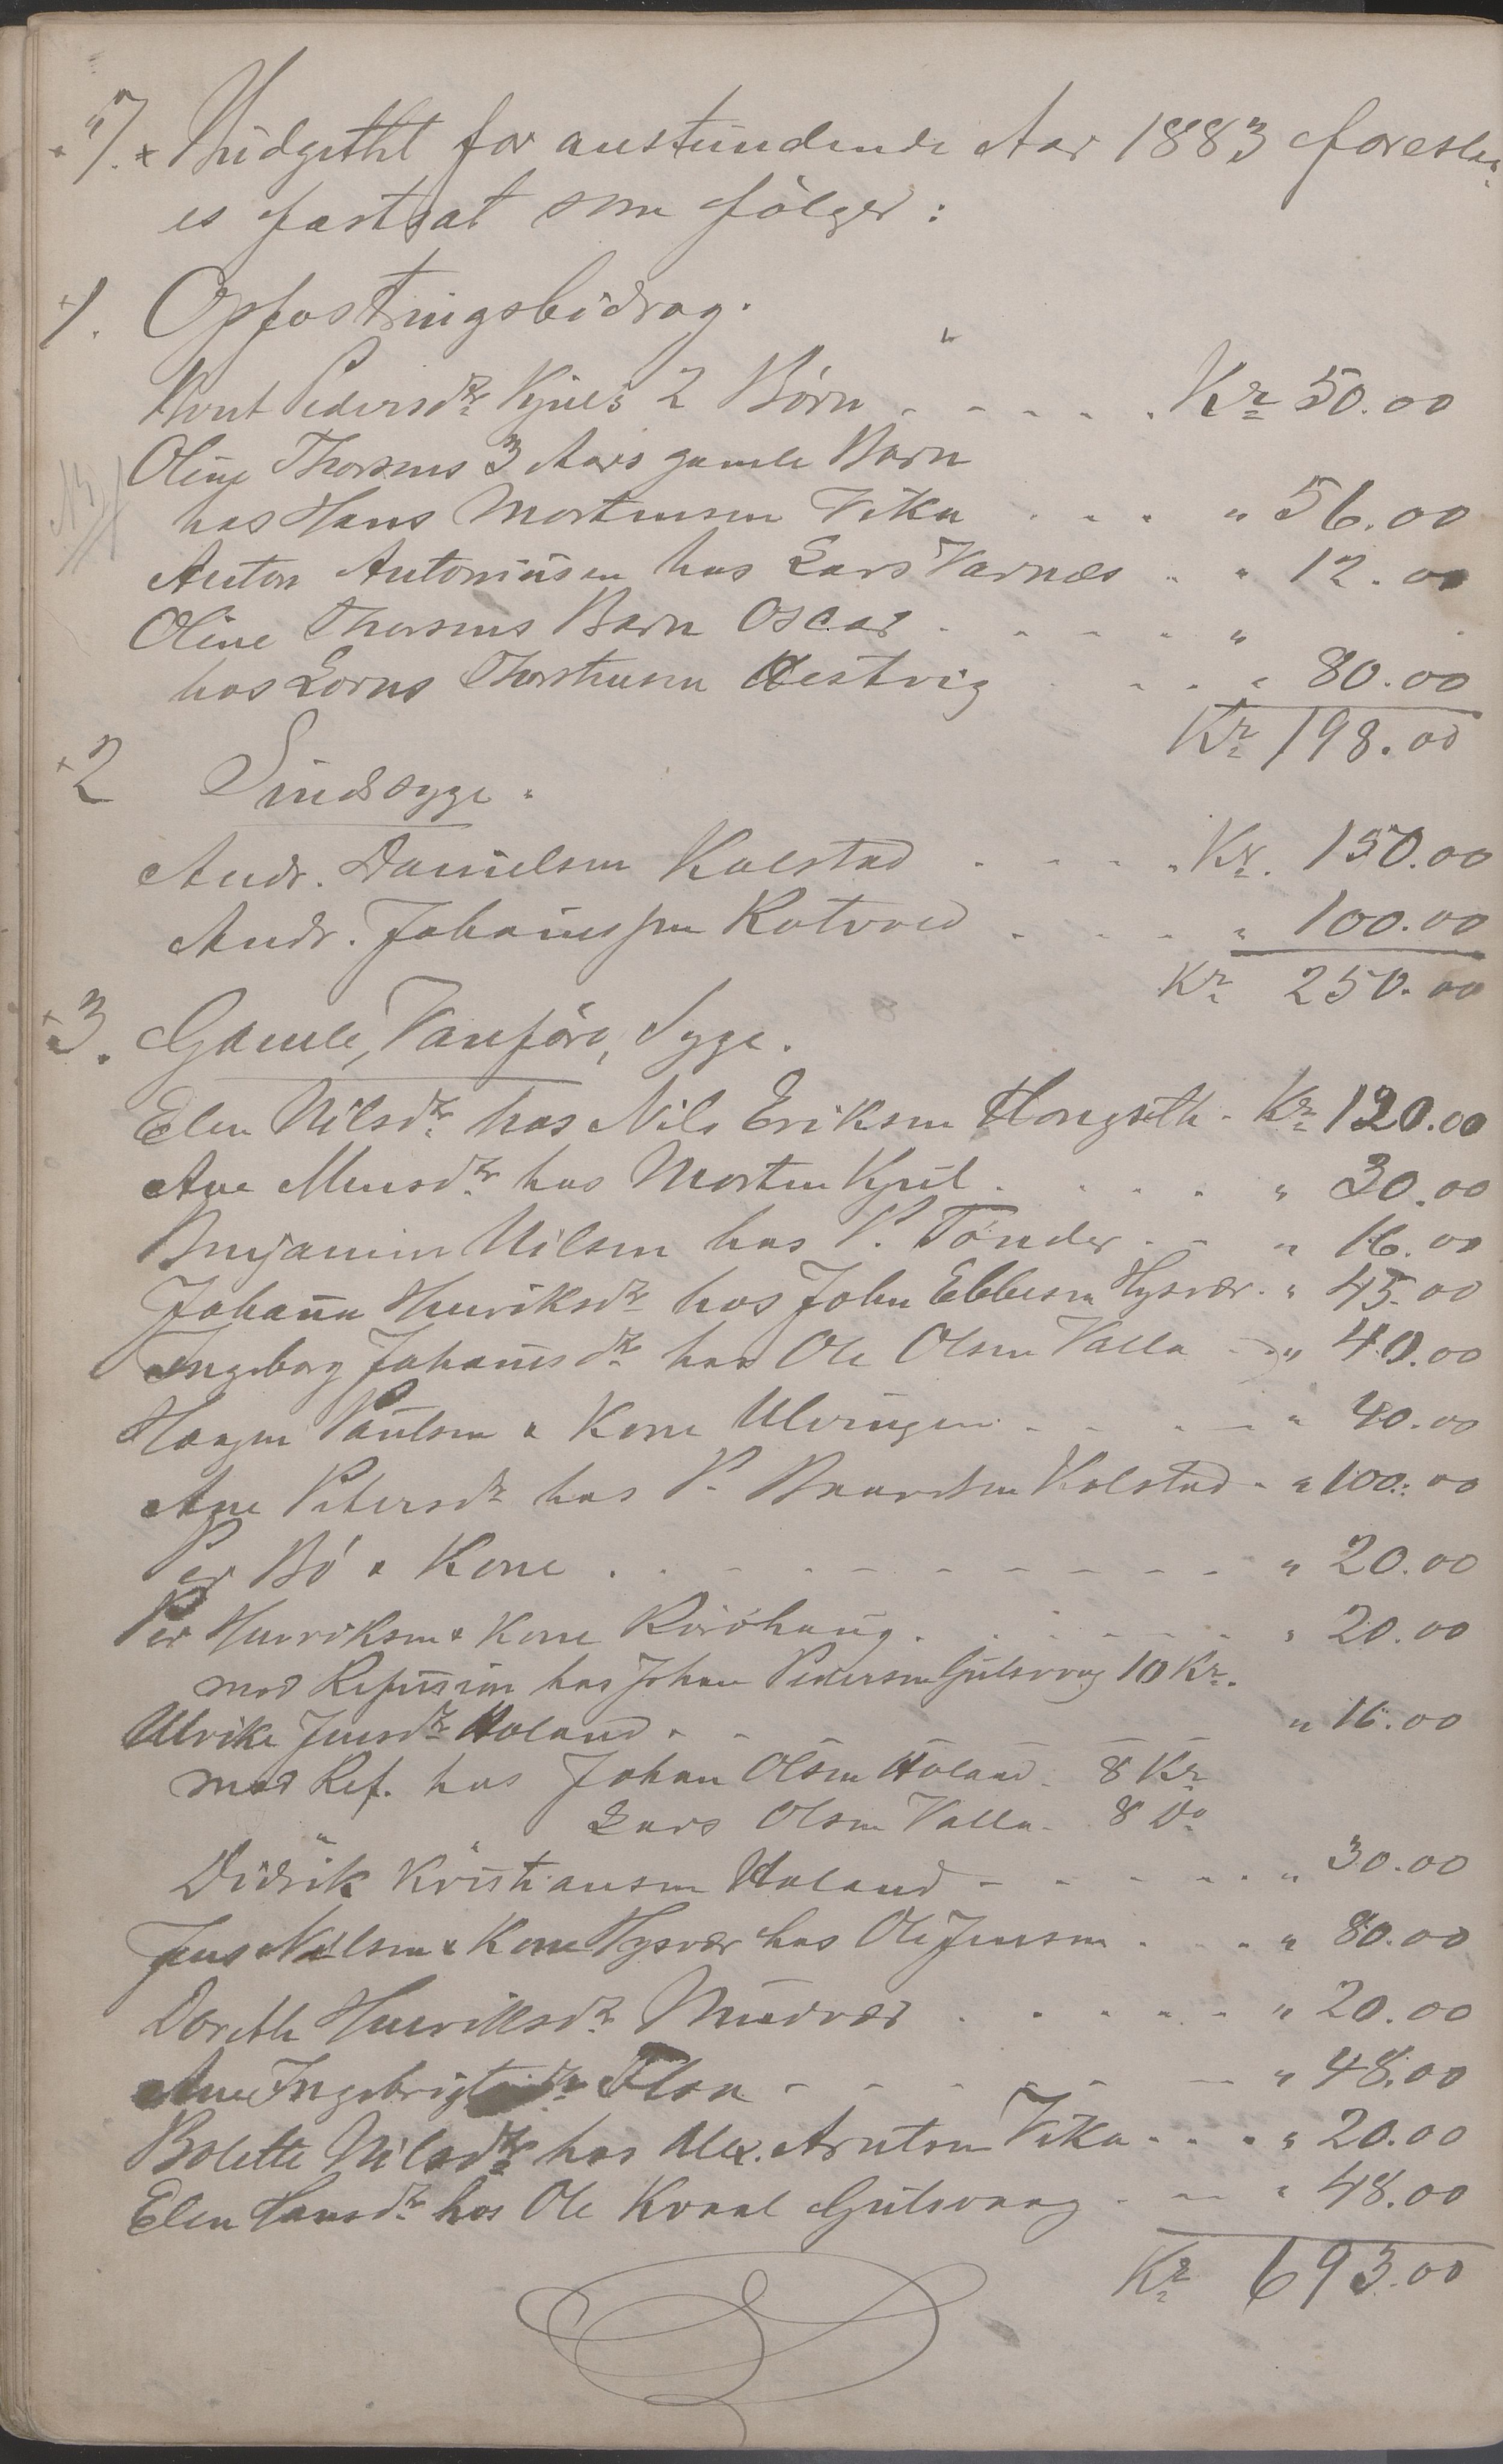 7. Budgettet for anstundende Aar 1883 foreslaa-
es fastsat som følger:
1. Opfostringsbidrag.
Pedersdr Kjuls 2 Børn . . . . . Kr 50.00
Oline Thorsens 3 Aars gamle Barn
hos Hans Mortensen Vika . . . " 56.00
Anton Antoniusen hos Lars Varnæs . " 12.00
Oline Thorsens Barn Oscar . . . . . "
hos Lorns Thorstensen Hestvig . . . " 80.00
Kr 198.00
2 Sindssyge.
Andr. Danielsen Kolstad . . . . Kr. 150.00
Andr. Johannessen Kotvold . . . " 100.00
Kr 250.00
3. Gamle, Vanføre, Syge.
Elen Nilsdr hos Nils Eriksen Hongseth - Kr 120.00
Ane Mensdr hos Morten Kjul . . . . " 30.00
Benjamin Nilsen hos P. Tønder . - " 16.00
Johanna Henriksdr hos John Ebbesen Hysvær . " 45.00
Ingeborg Johannesdr hos Ole Olsen Valla - " 40.00
Haagen Paulsen & Kone Ulvingen . - . - " 40.00
Ane Petersdr hos P. Baardsen Kolstad - " 100.00
Per Bø & Kone . - - - - - - - " 20.00
Per Henriksen & Kone Rørøhaug . . . - - - " 20.00
med Refusion hos Johan Pedersen Gulsvaag 10 Kr.
Ulrike Jensdr Holand - - - - - " 16.00
med Ref. hos Johan Olsen Holand 8 Kr
Lars Olsen Valla - 8 Do
Didrik Kristiansen Holand - - - - . " 30.00
Jens Nilsen & Kone Hysvær hos Ole Jensen . . . " 80.00
Dorethe Henriksdr Mudvær . . . . - " 20.00
Ane Ingebrigtsdr Floa - - - - - " 48.00
Bolette Nilsdr hos Alex. Arntsen Vika . . . " 20.00
Elen Hansdr hos Ole Kvaal Gulsvaag . - " 48.00
Kr 693.00